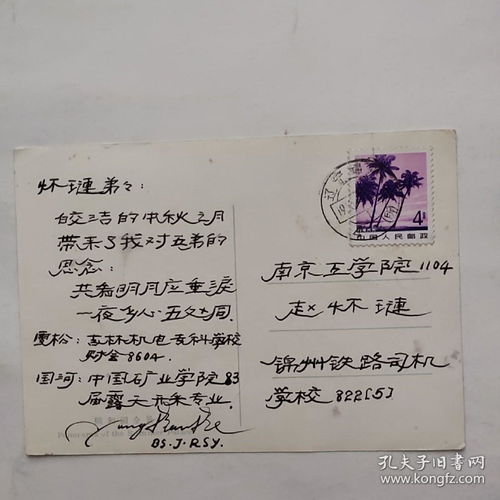 怀琏弟々：
皎洁的中秋之月
带来了我对五弟的
思念：
共看明月应垂泪
一夜乡心五处同.
雪松：吉林机电专科学校
财会8604.
国河：中国矿业学院83
届露天开采专业.
BS.J.RSY.
4分
中国人民邮政
辽宁
南京工学院1104
赵怀琏
锦州铁路司机
学校822[5]
孔夫子旧书网
www.kongfz.com